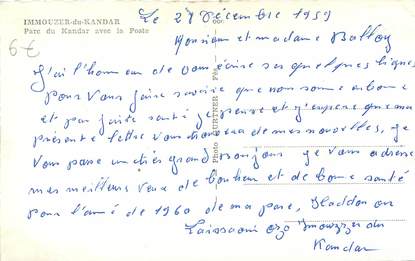 IMMOUZER-du-KANDAR
Parc du Kandar avec la Poste
6€
Le 27 Décembre 1959
Monsieur et madame
J'ai l'honneur de vous écrire ses quelques lignes
pour vous faire savoire que nous somme a bonne
et par faite santé je pense et j'espere que ma
présente lettre vous donnera de mes nouvelles, je
vous passe un chés grand bonjour je vous adresse
mes meilleurs veux de bonheur et de bonne santé
pour l'anné de 1960 de ma pare, Haddou ou
Imouzzer du
Kandar
Photo BURTNER Fès